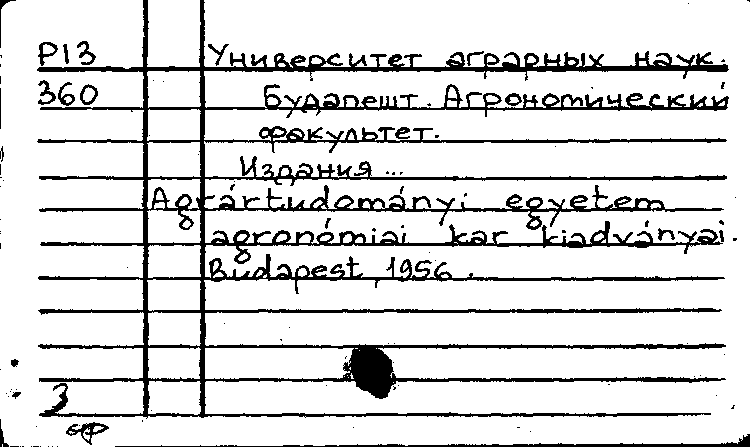 P13 Университет аграрных наук.
360 Будапешт. Агрономический
факультет.
Издания...
Agrártudományi egyetem
agronómiai kar kiadványai.
Budapest, 1956.
3